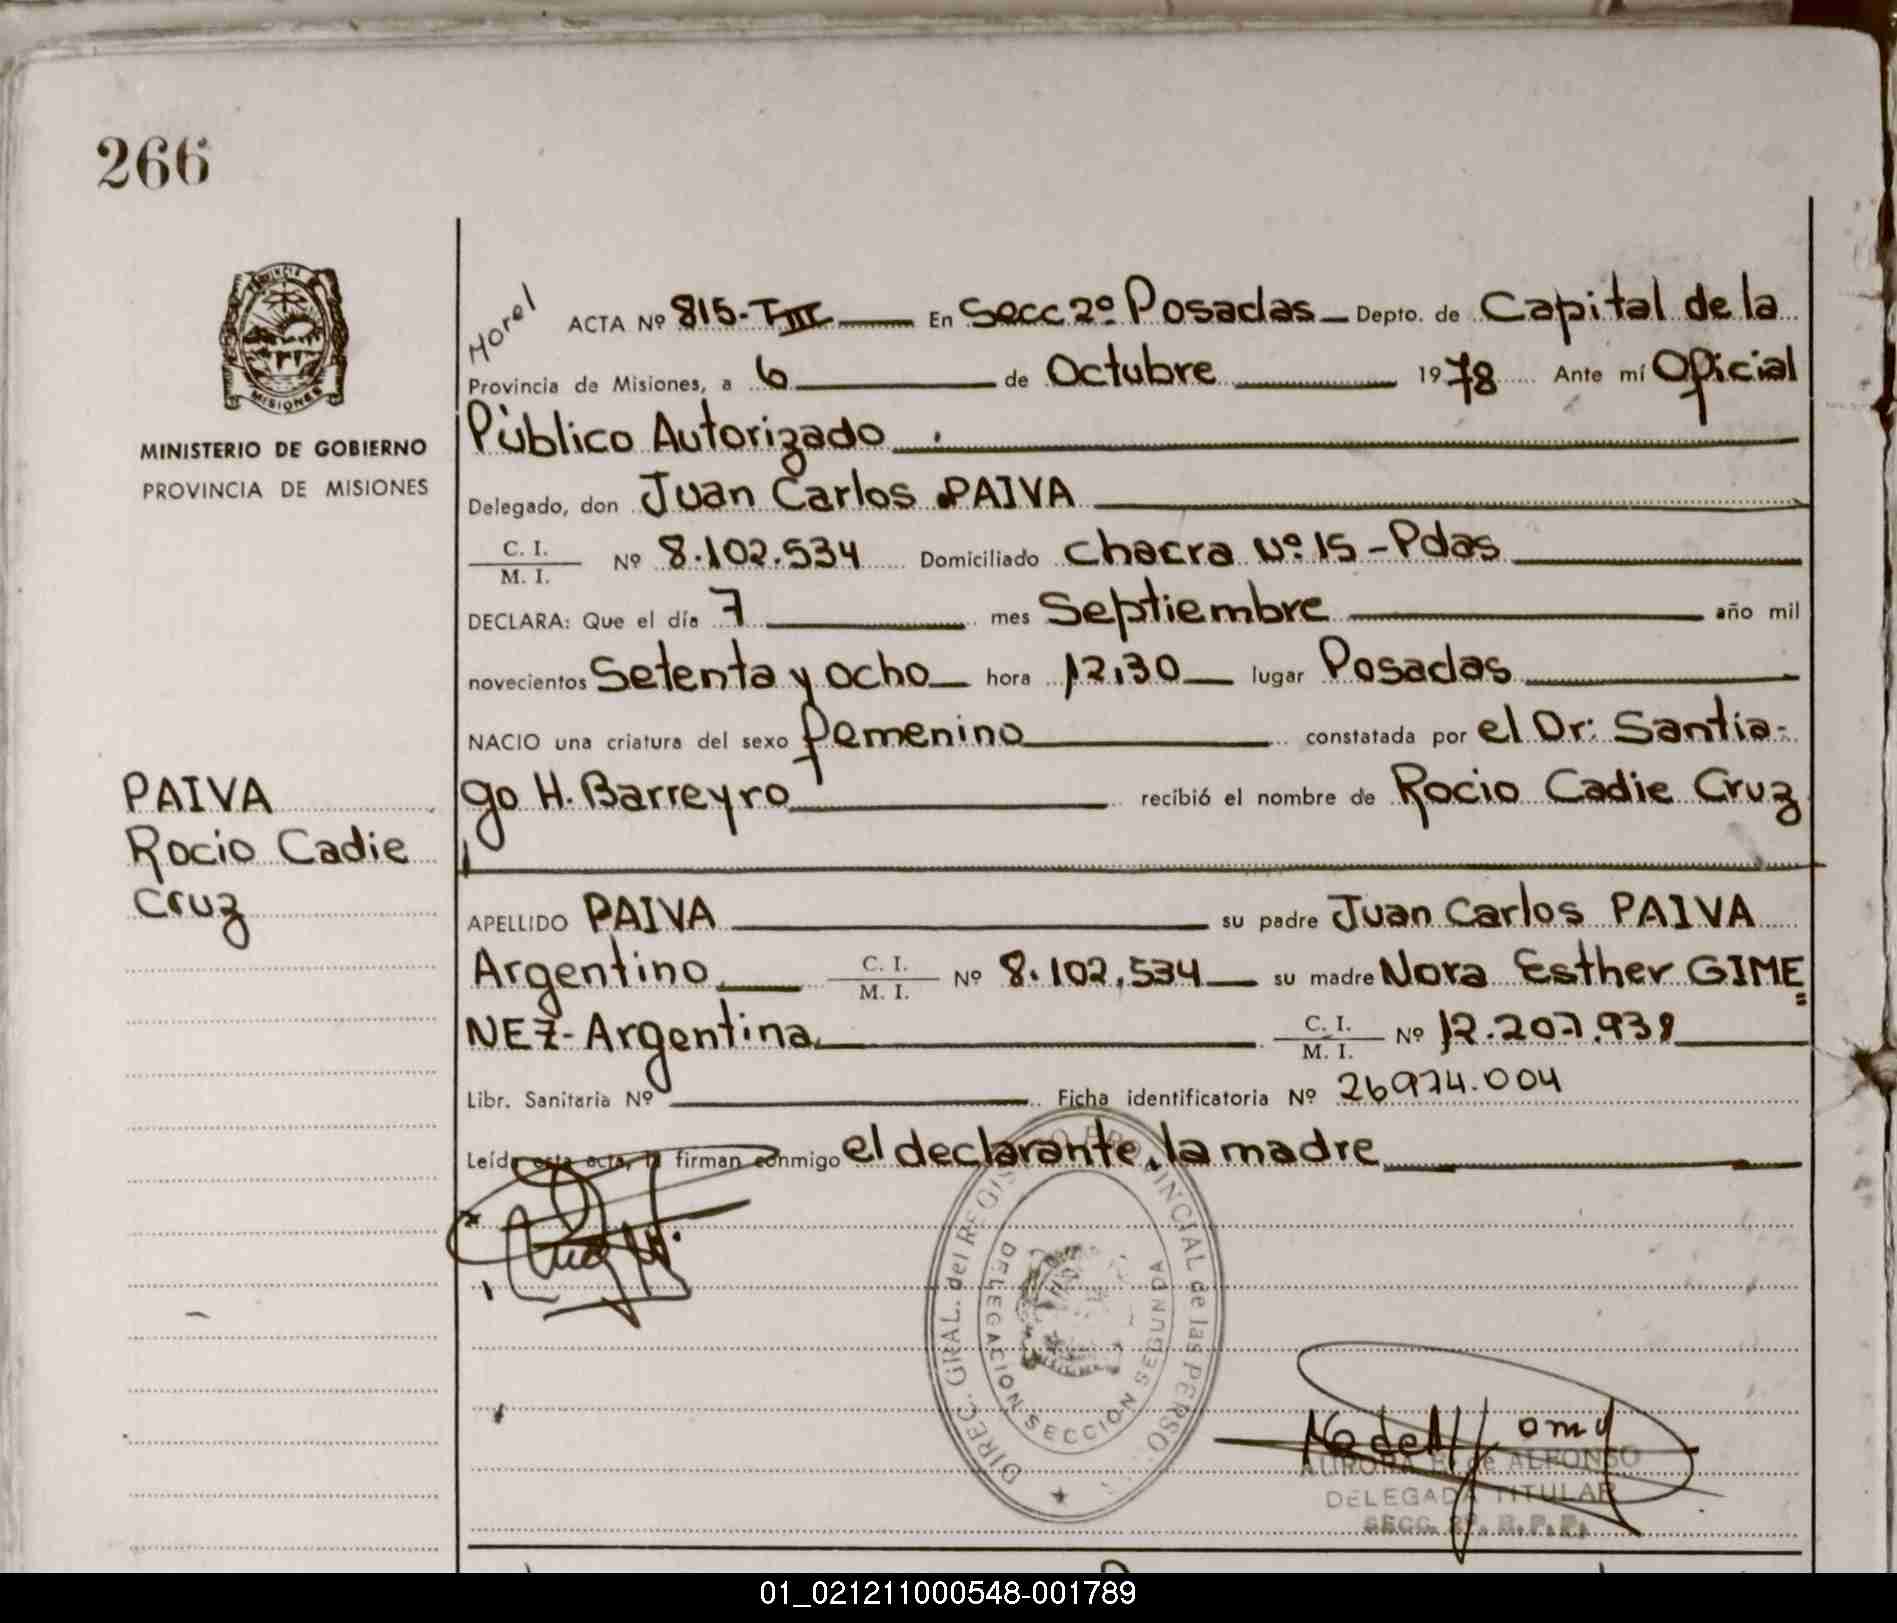 266
Morel
ACTA Nº 815-TIII En Secc 2º Posadas Depto. de Capital de la
Provincia de Misiones, a 6 de Octubre 1978 Ante mí Oficial
Público Autorizado
MINISTERIO DE GOBIERNO
PROVINCIA DE MISIONES
Delegado, don Juan Carlos PAIVA
C. I.
M. I. Nº 8.102.534 Domiciliado Chacra Nº 15 - Pdas
DECLARA: Que el día 7 mes Septiembre año mil
novecientos Setenta y ocho hora 12,30 lugar Posadas
NACIO una criatura del sexo femenino constatada por el Dr: Santia-
go H. Barreyro recibió el nombre de Rocio Cadie Cruz
PAIVA
Rocio Cadie
Cruz
APELLIDO PAIVA su padre Juan Carlos PAIVA
Argentino C. I.
M. I. Nº 8.102.534 su madre Nora Esther GIME
NEZ - Argentina C. I.
M. I. Nº 12.207.939
Libr. Sanitaria Nº Ficha identificatoria Nº 26974.004
Leída esta acta, la firman conmigo el declarante, la madre
DIREC. GRAL. del REGISTRO PROVINCIAL de las PERSO
DELEGACION SECCION SEGUNDA
AURORA de ALFONSO
DELEGADA TITULAR
SECC. 2ª. R.P.P.
01_021211000548-001789